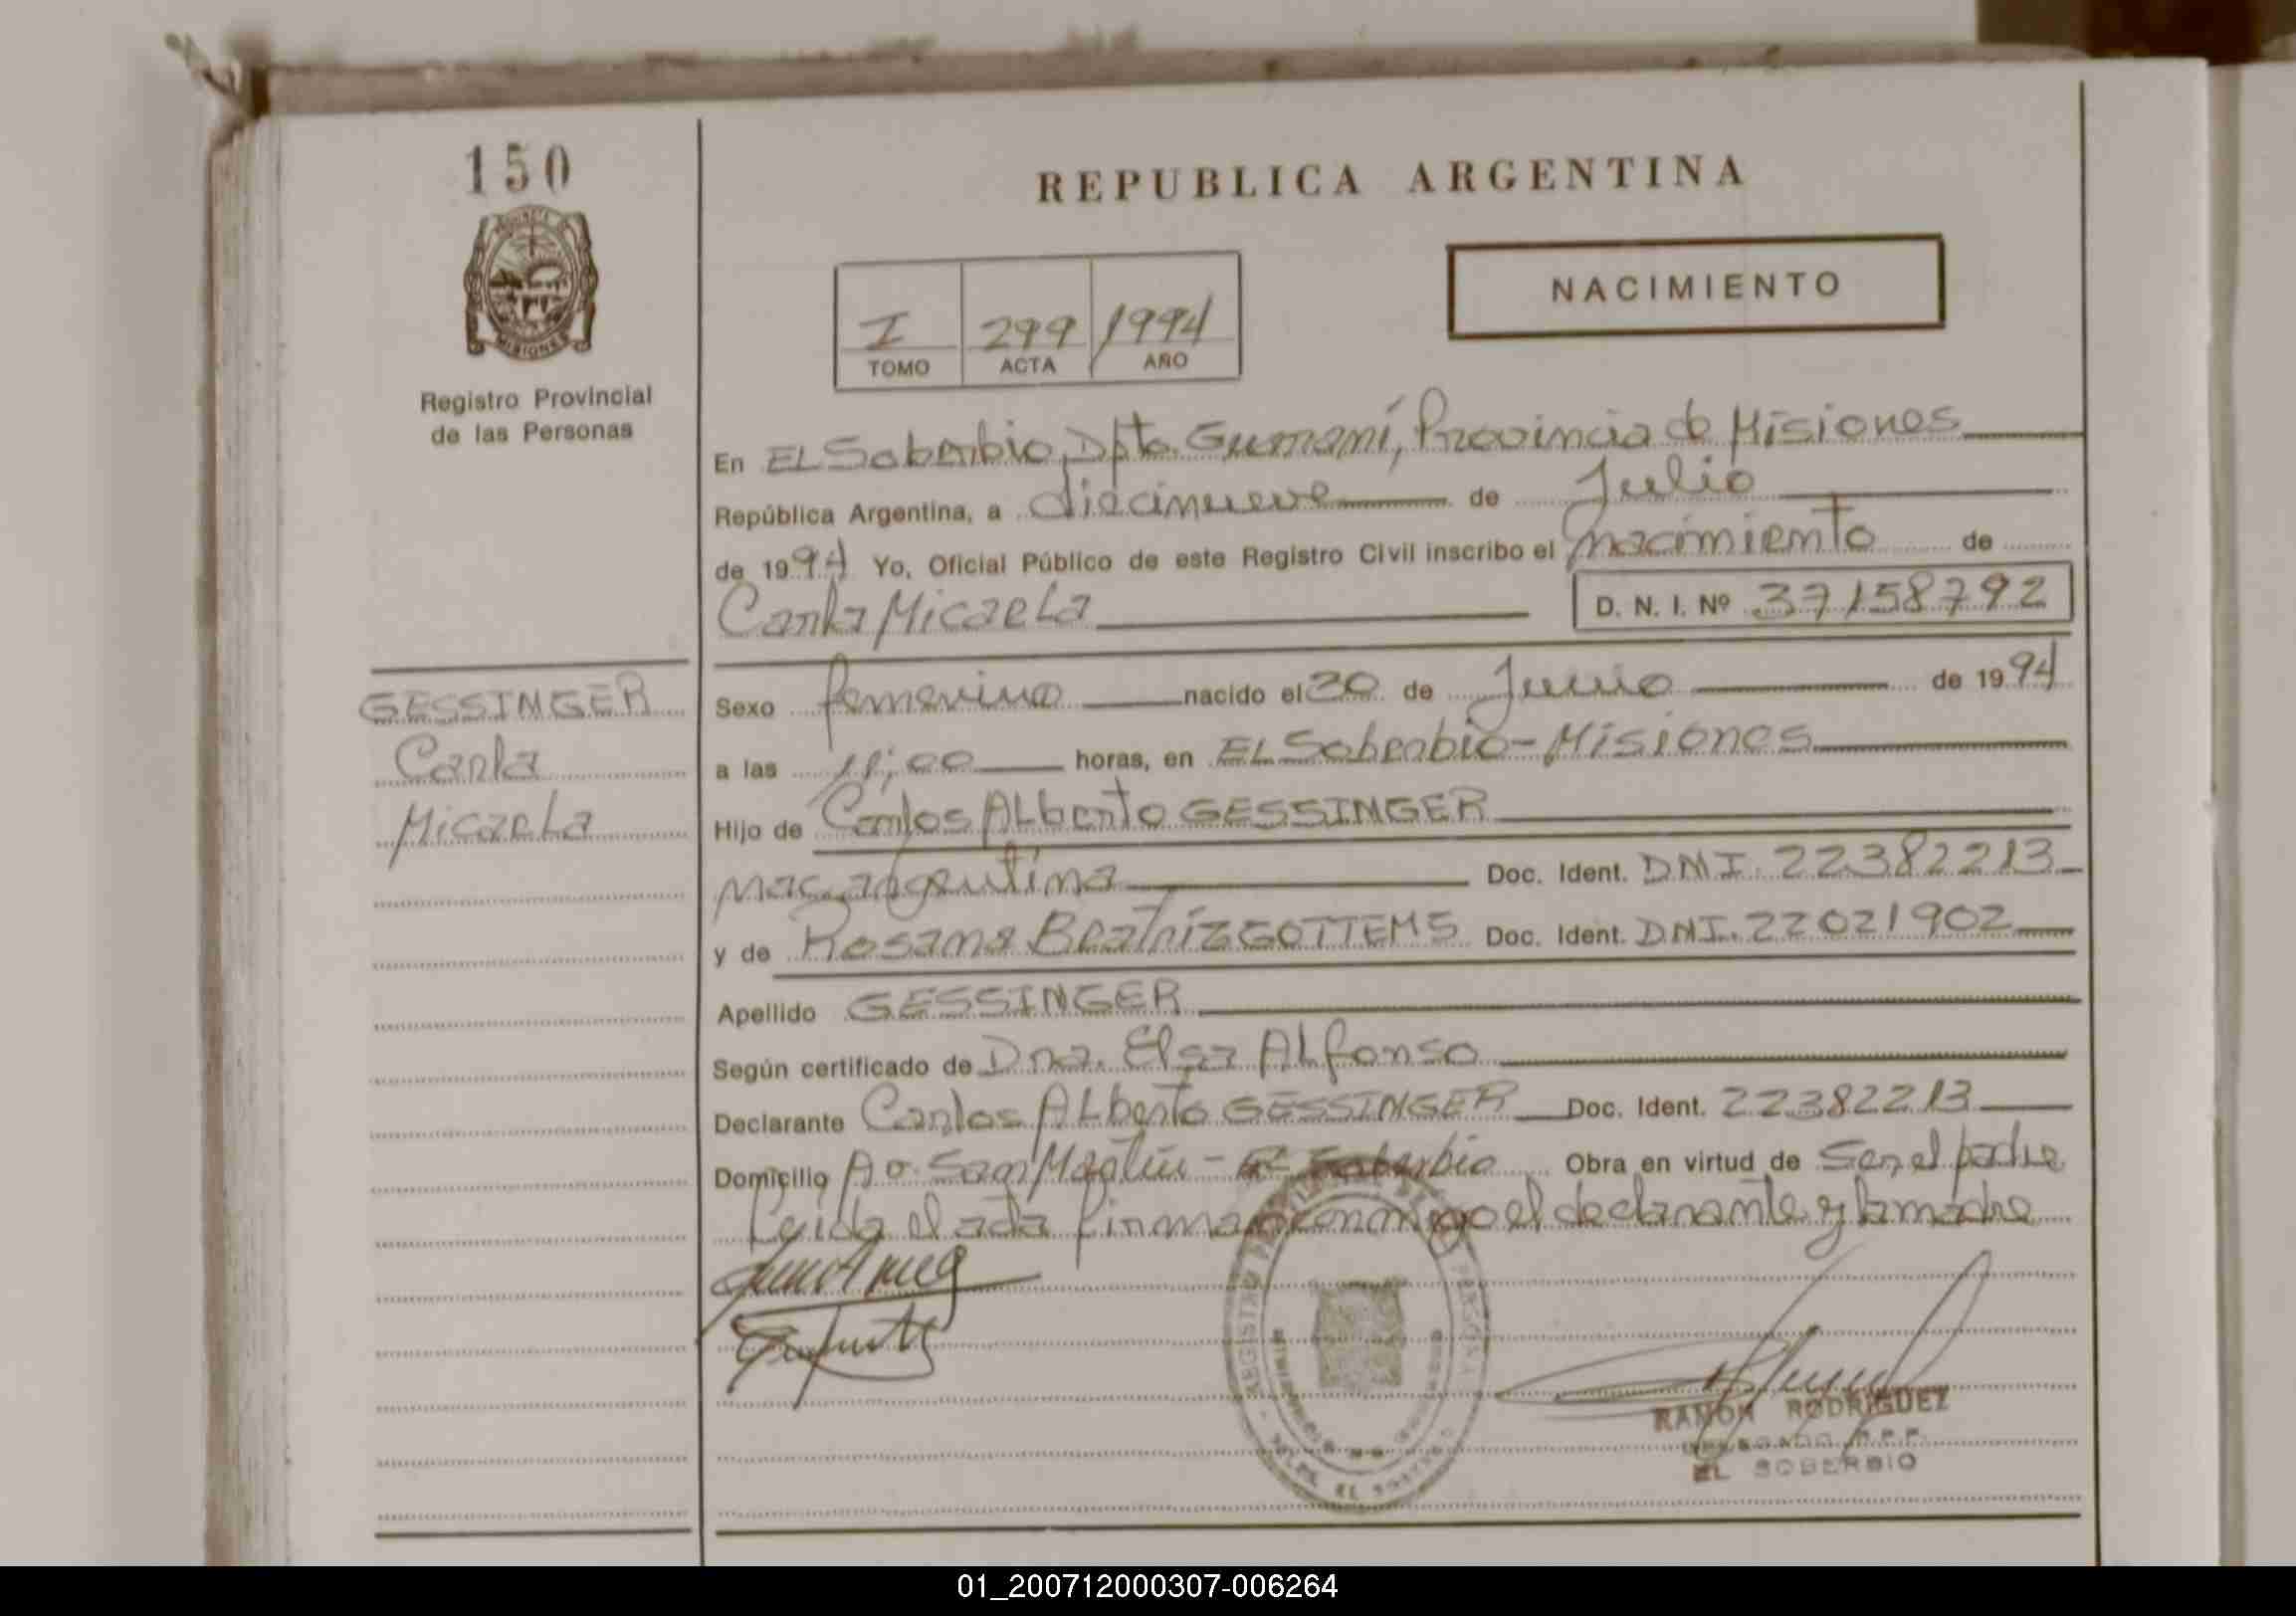 150
MISIONES
Registro Provincial
de las Personas
REPUBLICA ARGENTINA
NACIMIENTO
I 299 1994
TOMO ACTA AÑO
En EL Soberbio, Dpto. Guaraní, Provincia de Misiones
República Argentina, a diecinueve de Julio
de 1994 Yo, Oficial Público de este Registro Civil inscribo el nacimiento de
Carla Micaela D. N. I. Nº 37158792
GESSINGER
Carla
Micaela
Sexo femenino nacido el 20 de Junio de 1994
a las 11;00 horas, en EL Soberbio - Misiones
Hijo de Carlos ALberto GESSINGER
nac. argentina Doc. Ident. DNI. 22382213
y de Rosana Beatriz GOTTEMS Doc. Ident. DNI. 22021902
Apellido GESSINGER
Según certificado de Dra. Elsa ALfonso
Declarante Carlos ALberto GESSINGER Doc. Ident. 22382213
Domicilio Av. San Martín - El Soberbio Obra en virtud de Ser el padre
Leida el acta firman conmigo el declarante y la madre
RAMON RODRIGUEZ
DELEGADO R.P.P.
EL SOBERBIO
01_200712000307-006264